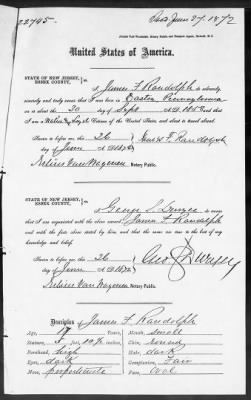 22795
Iss'd June 27. 1872
United States of America.
STATE OF NEW JERSEY,
ESSEX COUNTY.
I, James F. Randolph do solemnly,
sincerely and truly swear that I was born in Easton Pennsylvania
on the 30 day of Sept A.D. 1854 that
I am a Citizen of the United States, and about to travel abroad.
Sworn to before me this 26
day of June A.D. 1872
James F. Randolph
Notary Public.
STATE OF NEW JERSEY,
ESSEX COUNTY.
I, George
am acquainted with the above named James F. Randolph
and with the facts above stated by him, and that the same are true to the best of my
knowledge and belief.
Sworn to before me this 26
day of June A.D. 1872
Notary Public.
Description of James F. Randolph
Age, 17
Stature, 5 feet, 10 ½ inches
Forehead, high
Eyes, dark
Nose, proportionate
Mouth, small
Chin, round
Hair, dark
Complexion, Fair
Face, Oval